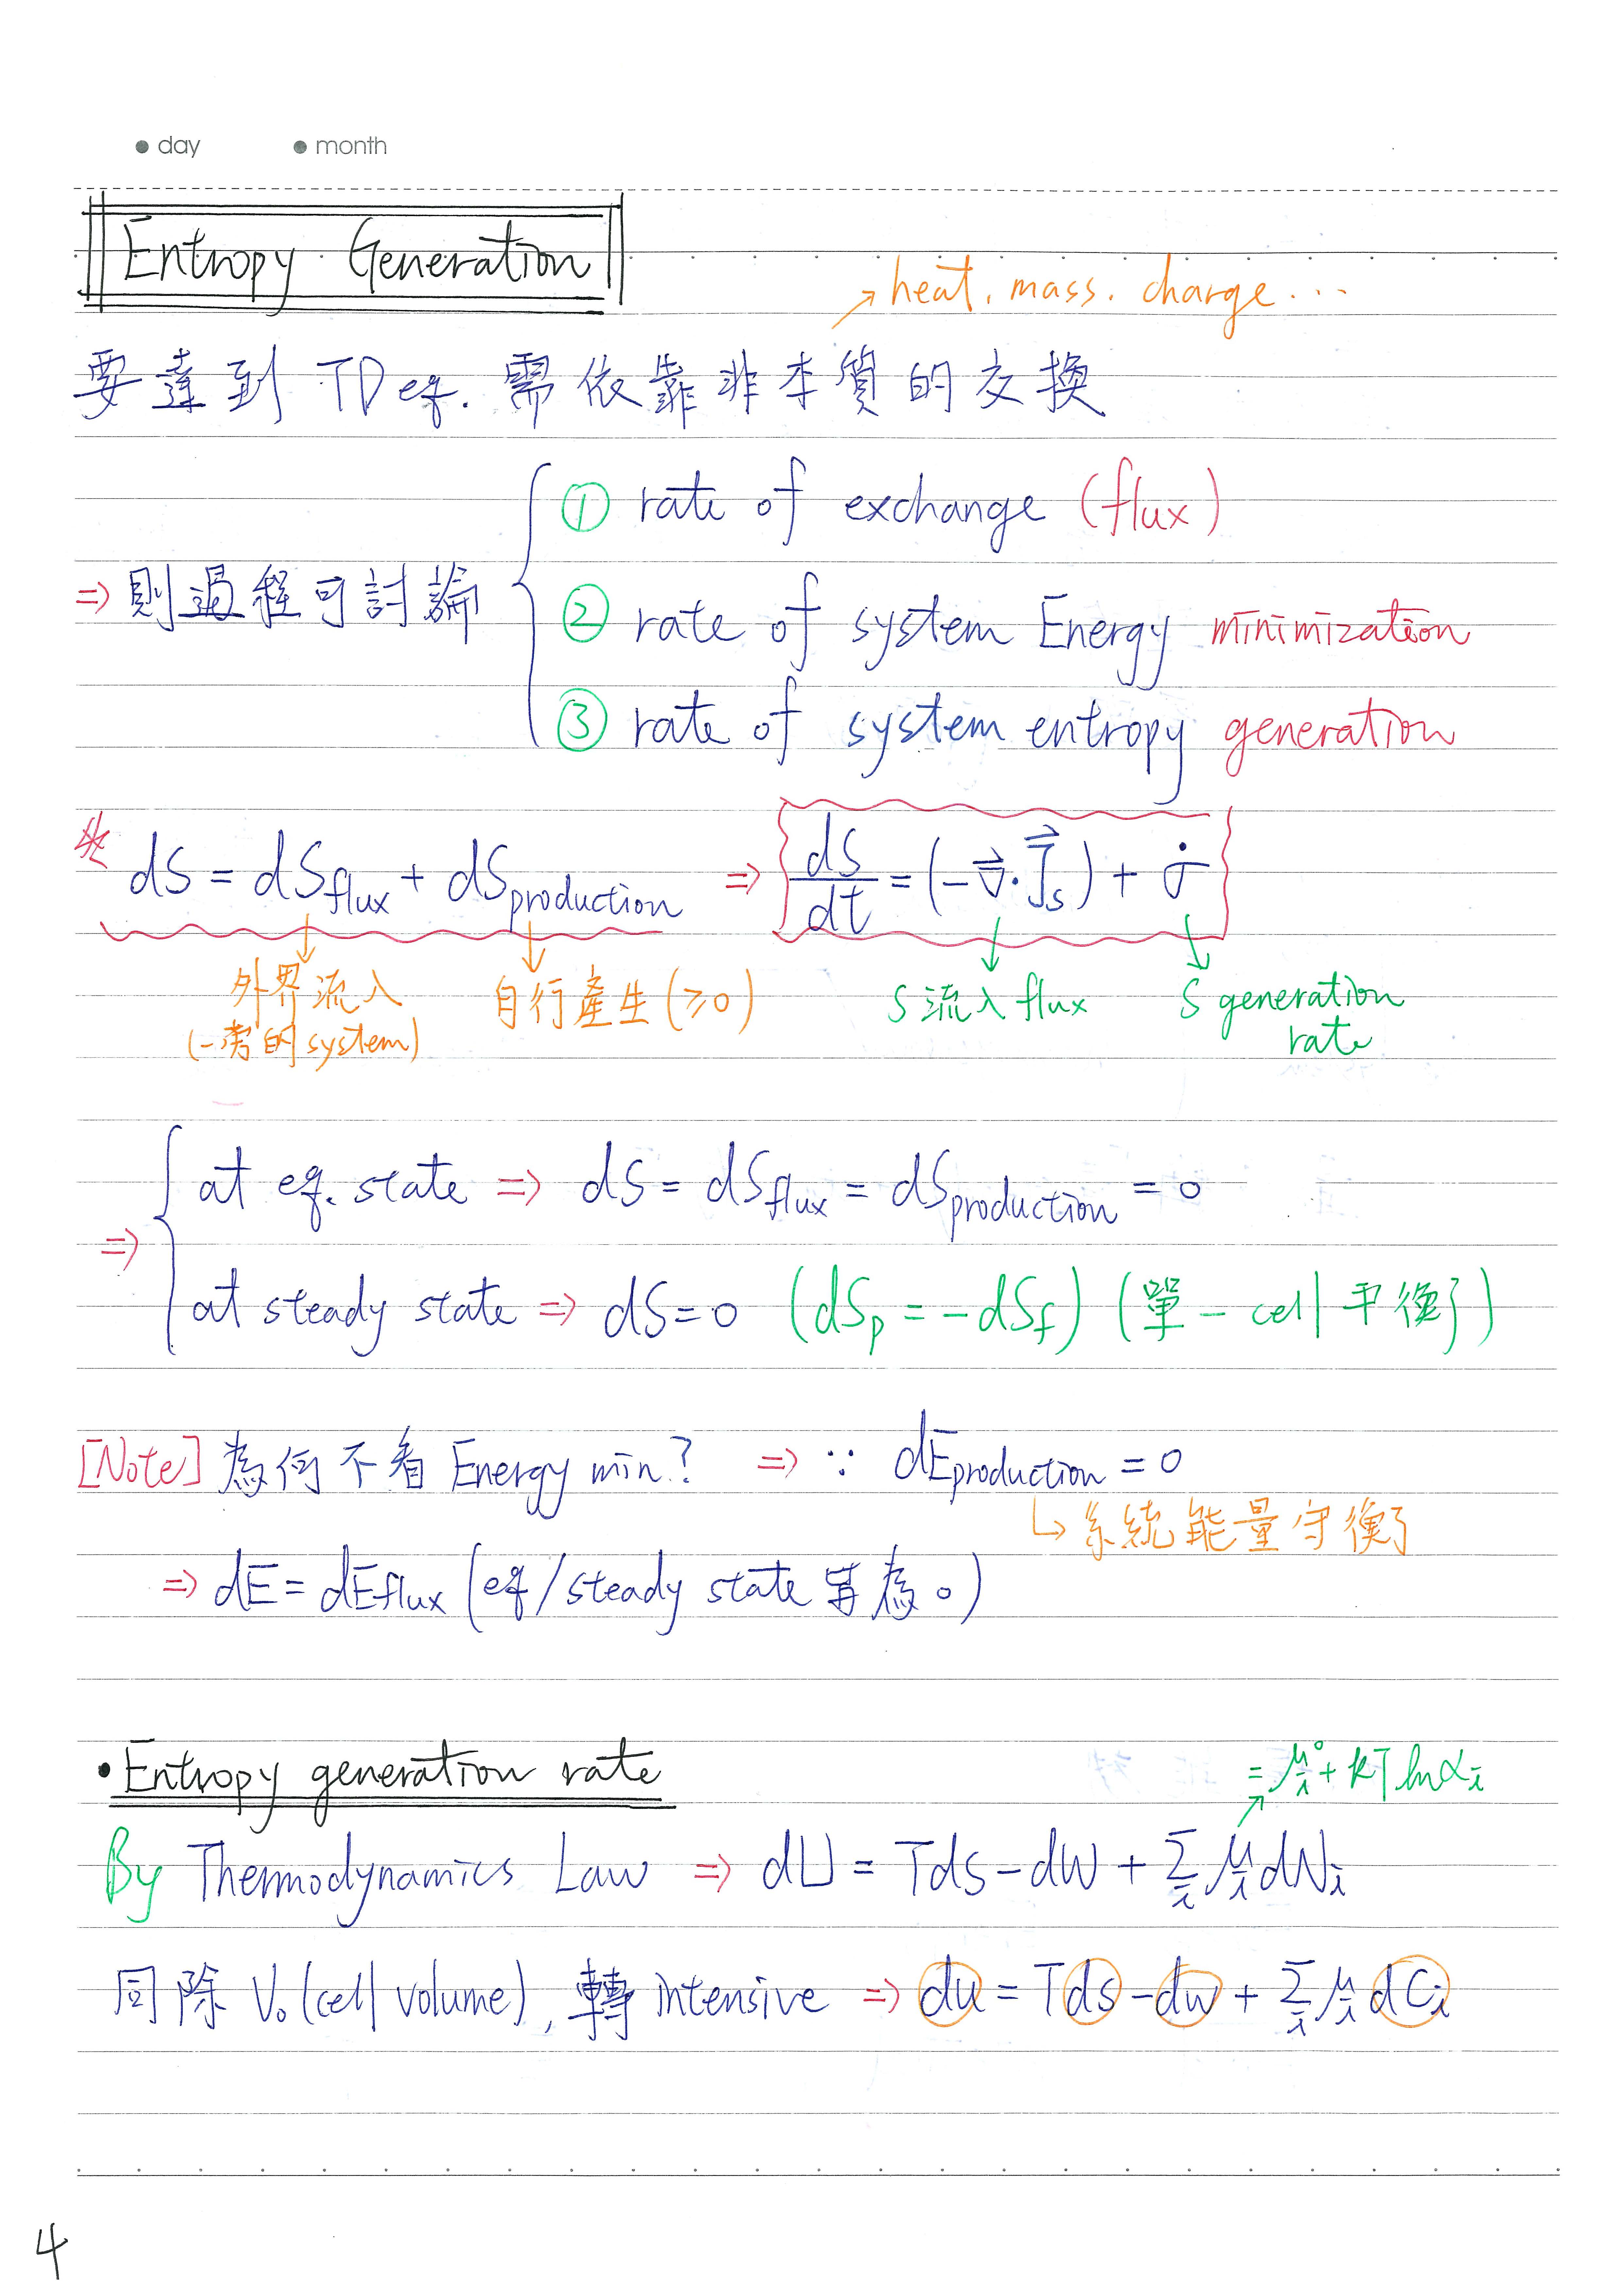 ● day ● month
Entropy Generation
→ heat. mass. charge...
要達到 TD eq. 需依靠非本質的交換
① rate of exchange (flux)
⇒ 則過程可討論 ② rate of system Energy minimization
③ rate of system entropy generation
※ dS = dS_flux + dS_production ⇒ dS/dt = (-∇⃗·J⃗_s) + σ̇
外界流入 自行產生(≥0) S 流入 flux S generation
(一旁的system) rate
⇒ { at eq. state ⇒ dS = dS_flux = dS_production = 0
at steady state ⇒ dS = 0 (dS_p = -dS_f) (單一 cell 平衡了)
[Note] 為何不看 Energy min? ⇒ ∵ dE_production = 0
↳ 系統能量守衡了
⇒ dE = dE_flux (eq/steady state 皆為 0)
• Entropy generation rate
= μ_i° + kT ln α_i
By Thermodynamics Law ⇒ dU = TdS - dW + Σ_i μ_i dN_i
同除 V₀ (cell volume), 轉 intensive ⇒ du = Tds - dw + Σ_i μ_i dC_i
4